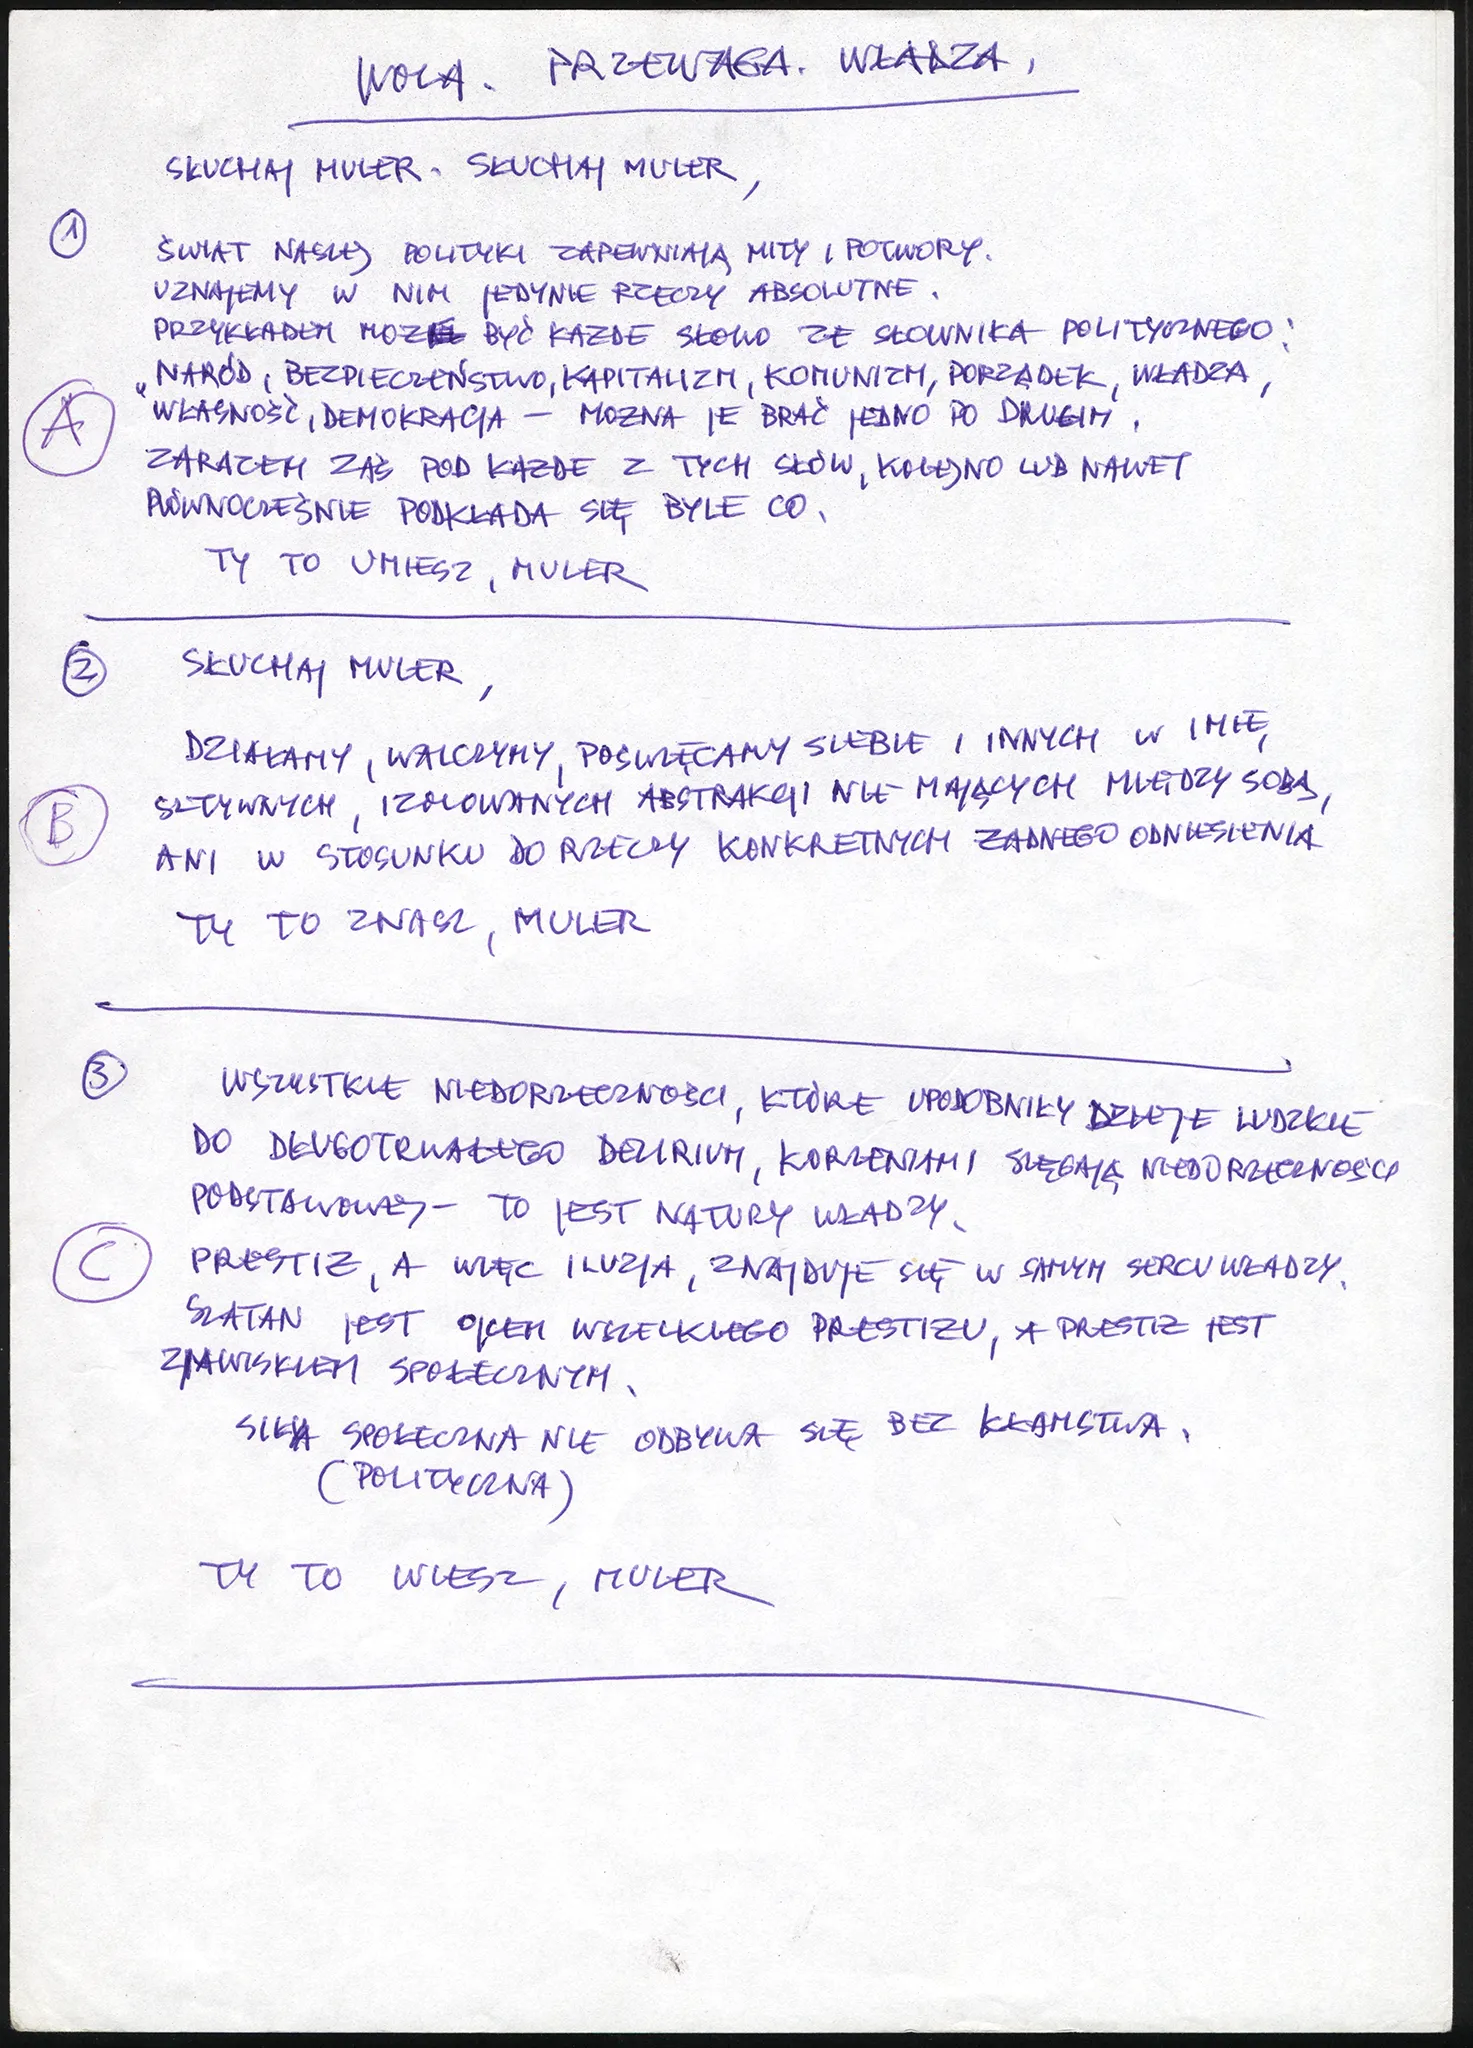 WOLA. PRZEWAGA. WŁADZA.
SŁUCHAJ MULER. SŁUCHAJ MULER,
1
ŚWIAT NASZEJ POLITYKI ZAPEWNIAJĄ MITY I POTWORY.
UZNAJEMY W NIM JEDYNIE RZECZY ABSOLUTNE.
PRZYKŁADEM MOZE BYĆ KAZDE SŁOWO ZE SŁOWNIKA POLITYCZNEGO:
"NARÓD, BEZPIECZEŃSTWO, KAPITALIZM, KOMUNIZM, PORZĄDEK, WŁADZA,
A
WŁASNOŚĆ, DEMOKRACJA – MOZNA JE BRAĆ JEDNO PO DRUGIM.
ZARAZEM ZAŚ POD KAZDE Z TYCH SŁÓW, KOLEJNO LUB NAWET
RÓWNOCZEŚNIE PODKŁADA SIĘ BYLE CO.
TY TO UMIESZ, MULER
2
SŁUCHAJ MULER,
DZIAŁAMY, WALCZYMY, POŚWIĘCAMY SIEBIE I INNYCH W IMIĘ
B
SZTYWNYCH, IZOLOWANYCH ABSTRAKCJI NIE MAJĄCYCH MIĘDZY SOBĄ,
ANI W STOSUNKU DO RZECZY KONKRETNYCH ZADNEGO ODNIESIENIA
TY TO ZNASZ, MULER
3
WSZYSTKIE NIEDORZECZNOŚCI, KTÓRE UPODOBNIŁY DZIEJE LUDZKIE
DO DŁUGOTRWAŁEGO DELIRIUM, KORZENIAMI SIĘGAJĄ NIEDORZECZNOŚCI
PODSTAWOWEJ – TO JEST NATURY WŁADZY.
C
PRESTIZ, A WIĘC ILUZJA, ZNAJDUJE SIĘ W SAMYM SERCU WŁADZY.
SZATAN JEST OJCEM WSZELKIEGO PRESTIZU, A PRESTIZ JEST
ZJAWISKIEM SPOŁECZNYM.
SIŁA SPOŁECZNA NIE ODBYWA SIĘ BEZ KŁAMSTWA.
(POLITYCZNA)
TY TO WIESZ, MULER